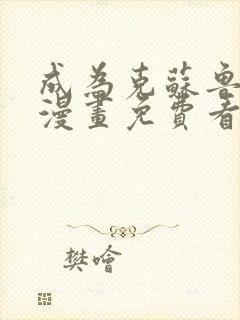 成為克蘇魯
漫畫免費看
樊噲